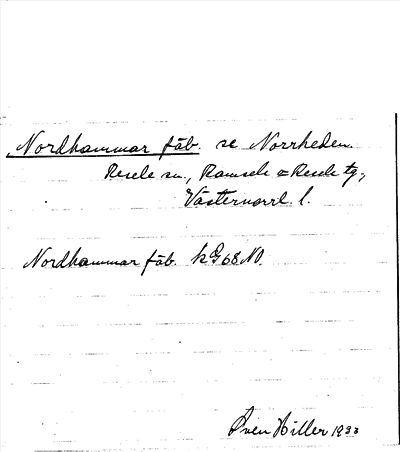 Nordhammar fäb. se Norrheden.
Resele sn., Ramsele o Resele tg.,
Västernorrl. l.
Nordhammar fäb. k G 68 NO.
Sven Hiller 1933